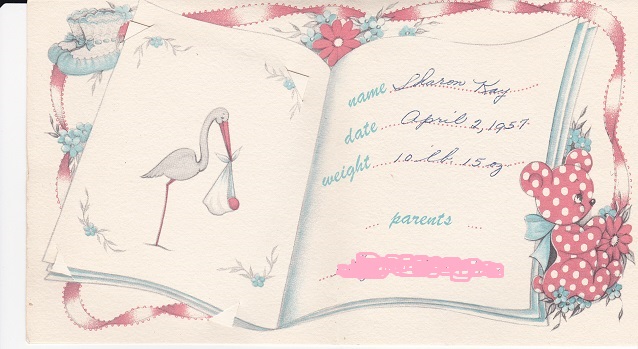 name Sharon Kay
date April 2, 1957
weight 10 lb. 15 oz
parents